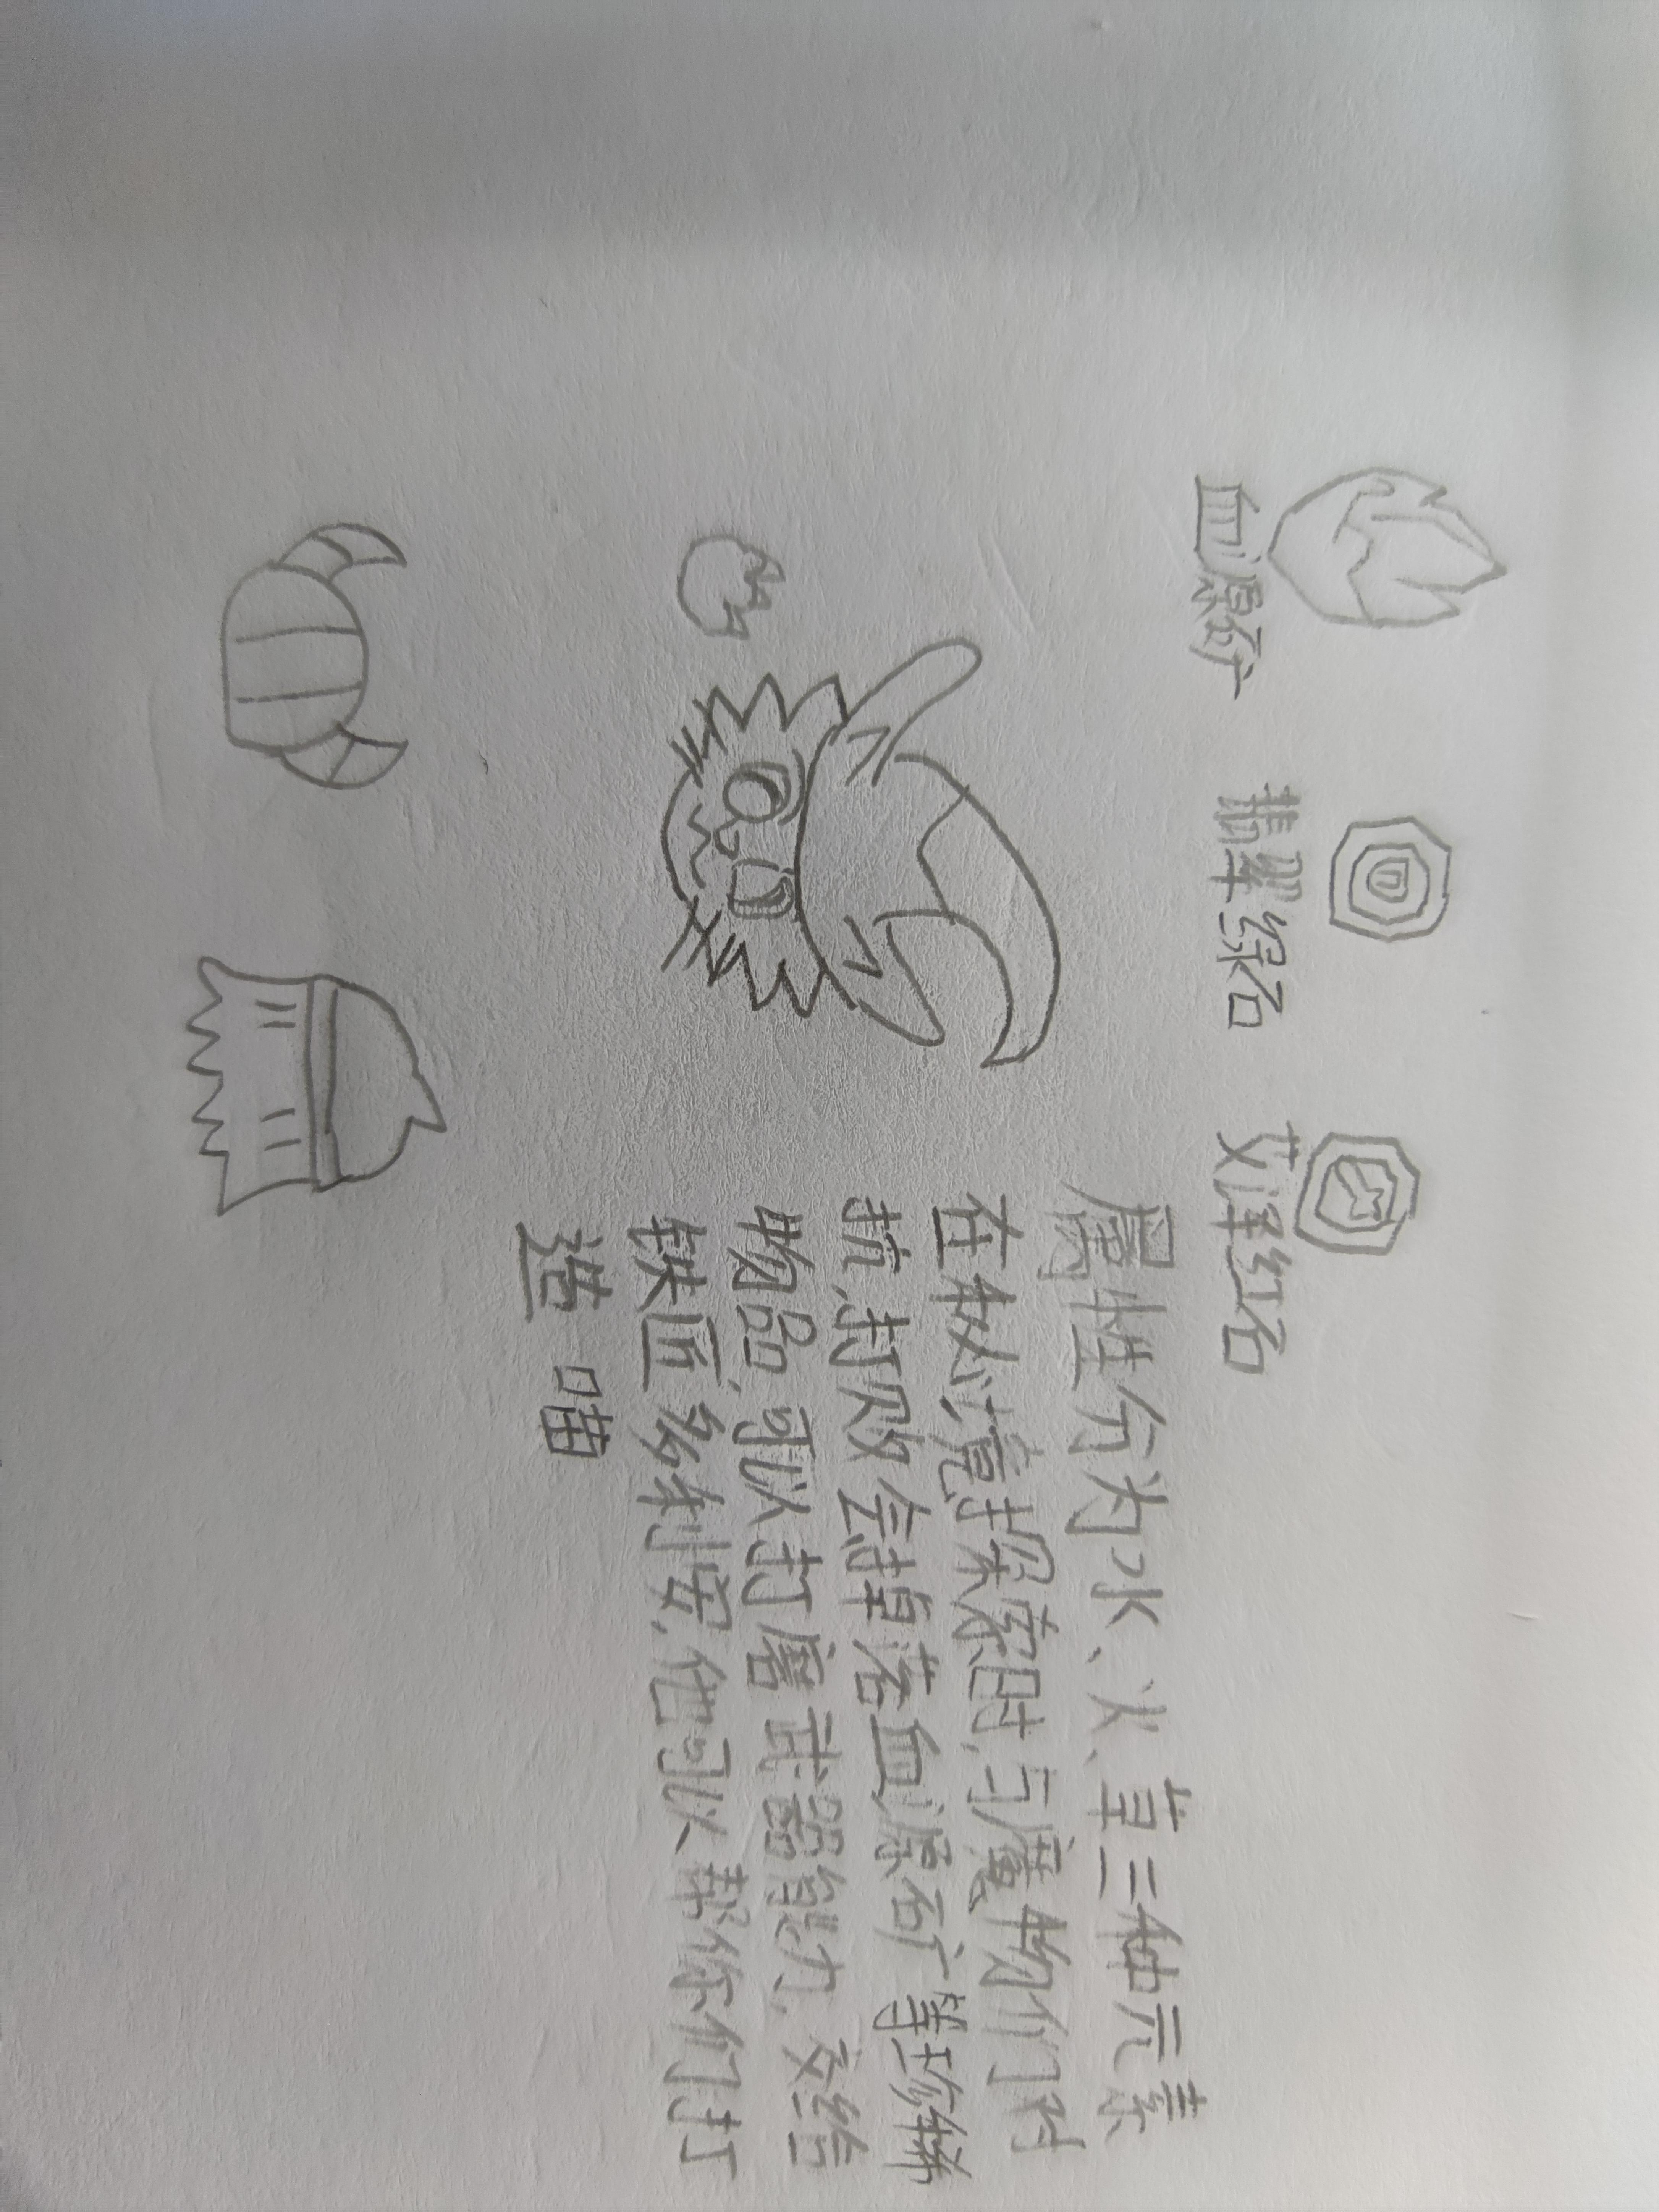 血源矿
翡翠绿石
艾泽红石
属性分为水、火、草三种元素
在秘境探索时,与魔物们对
抗,打败会掉落血源矿等珍稀
物品,可以打磨武器能力,交给
铁匠多利安,他可以帮你们打
造 喵